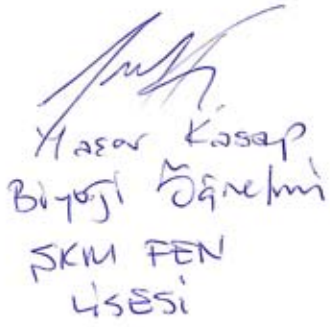 Yaşar Kasap
Biyoloji Öğretmeni
ŞKM FEN
LİSESİ